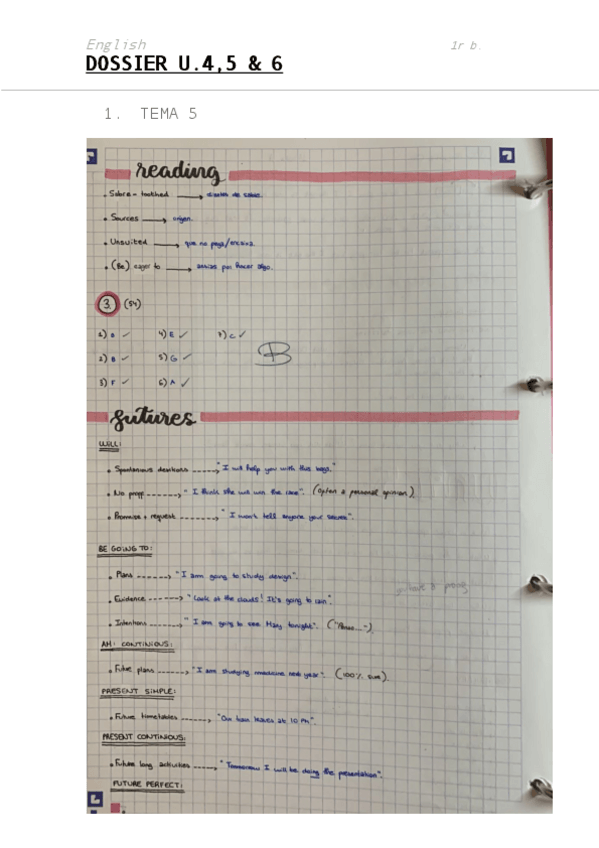 English 1r b.
DOSSIER U.4,5 & 6
1. TEMA 5
reading
• Sabre-toothed → dientes de sable.
• Sources → origen.
• Unsuited → que no pega/encaja.
• (Be) eager to → ansias por hacer algo.
3. (54)
1) D ✓ 4) E ✓ 7) C ✓
2) B ✓ 5) G ✓
3) F ✓ 6) A ✓
B
futures
WILL:
• Spontanious desitions -----→ "I will help you with this bags."
• No proof -------→ "I think she will win the race". (Often a personal opinion).
• Promise + request ------→ "I won't tell anyone your secret".
BE GOING TO:
• Plans -------→ "I am going to study design".
• Evidence ------→ "Look at the clouds! It's going to rain".
• Intentions -----→ "I am going to see Mary tonight".
AM: CONTINIOUS:
• Future plans -----→ "I am studying medicine next year". (100% sure).
PRESENT SIMPLE:
• Future timetables ------→ "Our train leaves at 10 PM".
PRESENT CONTINIOUS:
• Future long activities -----→ "Tomorrow I will be doing the presentation".
FUTURE PERFECT: